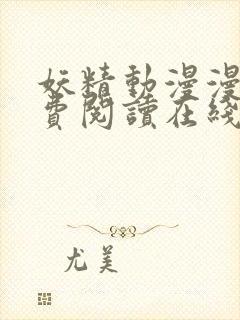 妖精動漫漫
費閱讀在綫
尤美